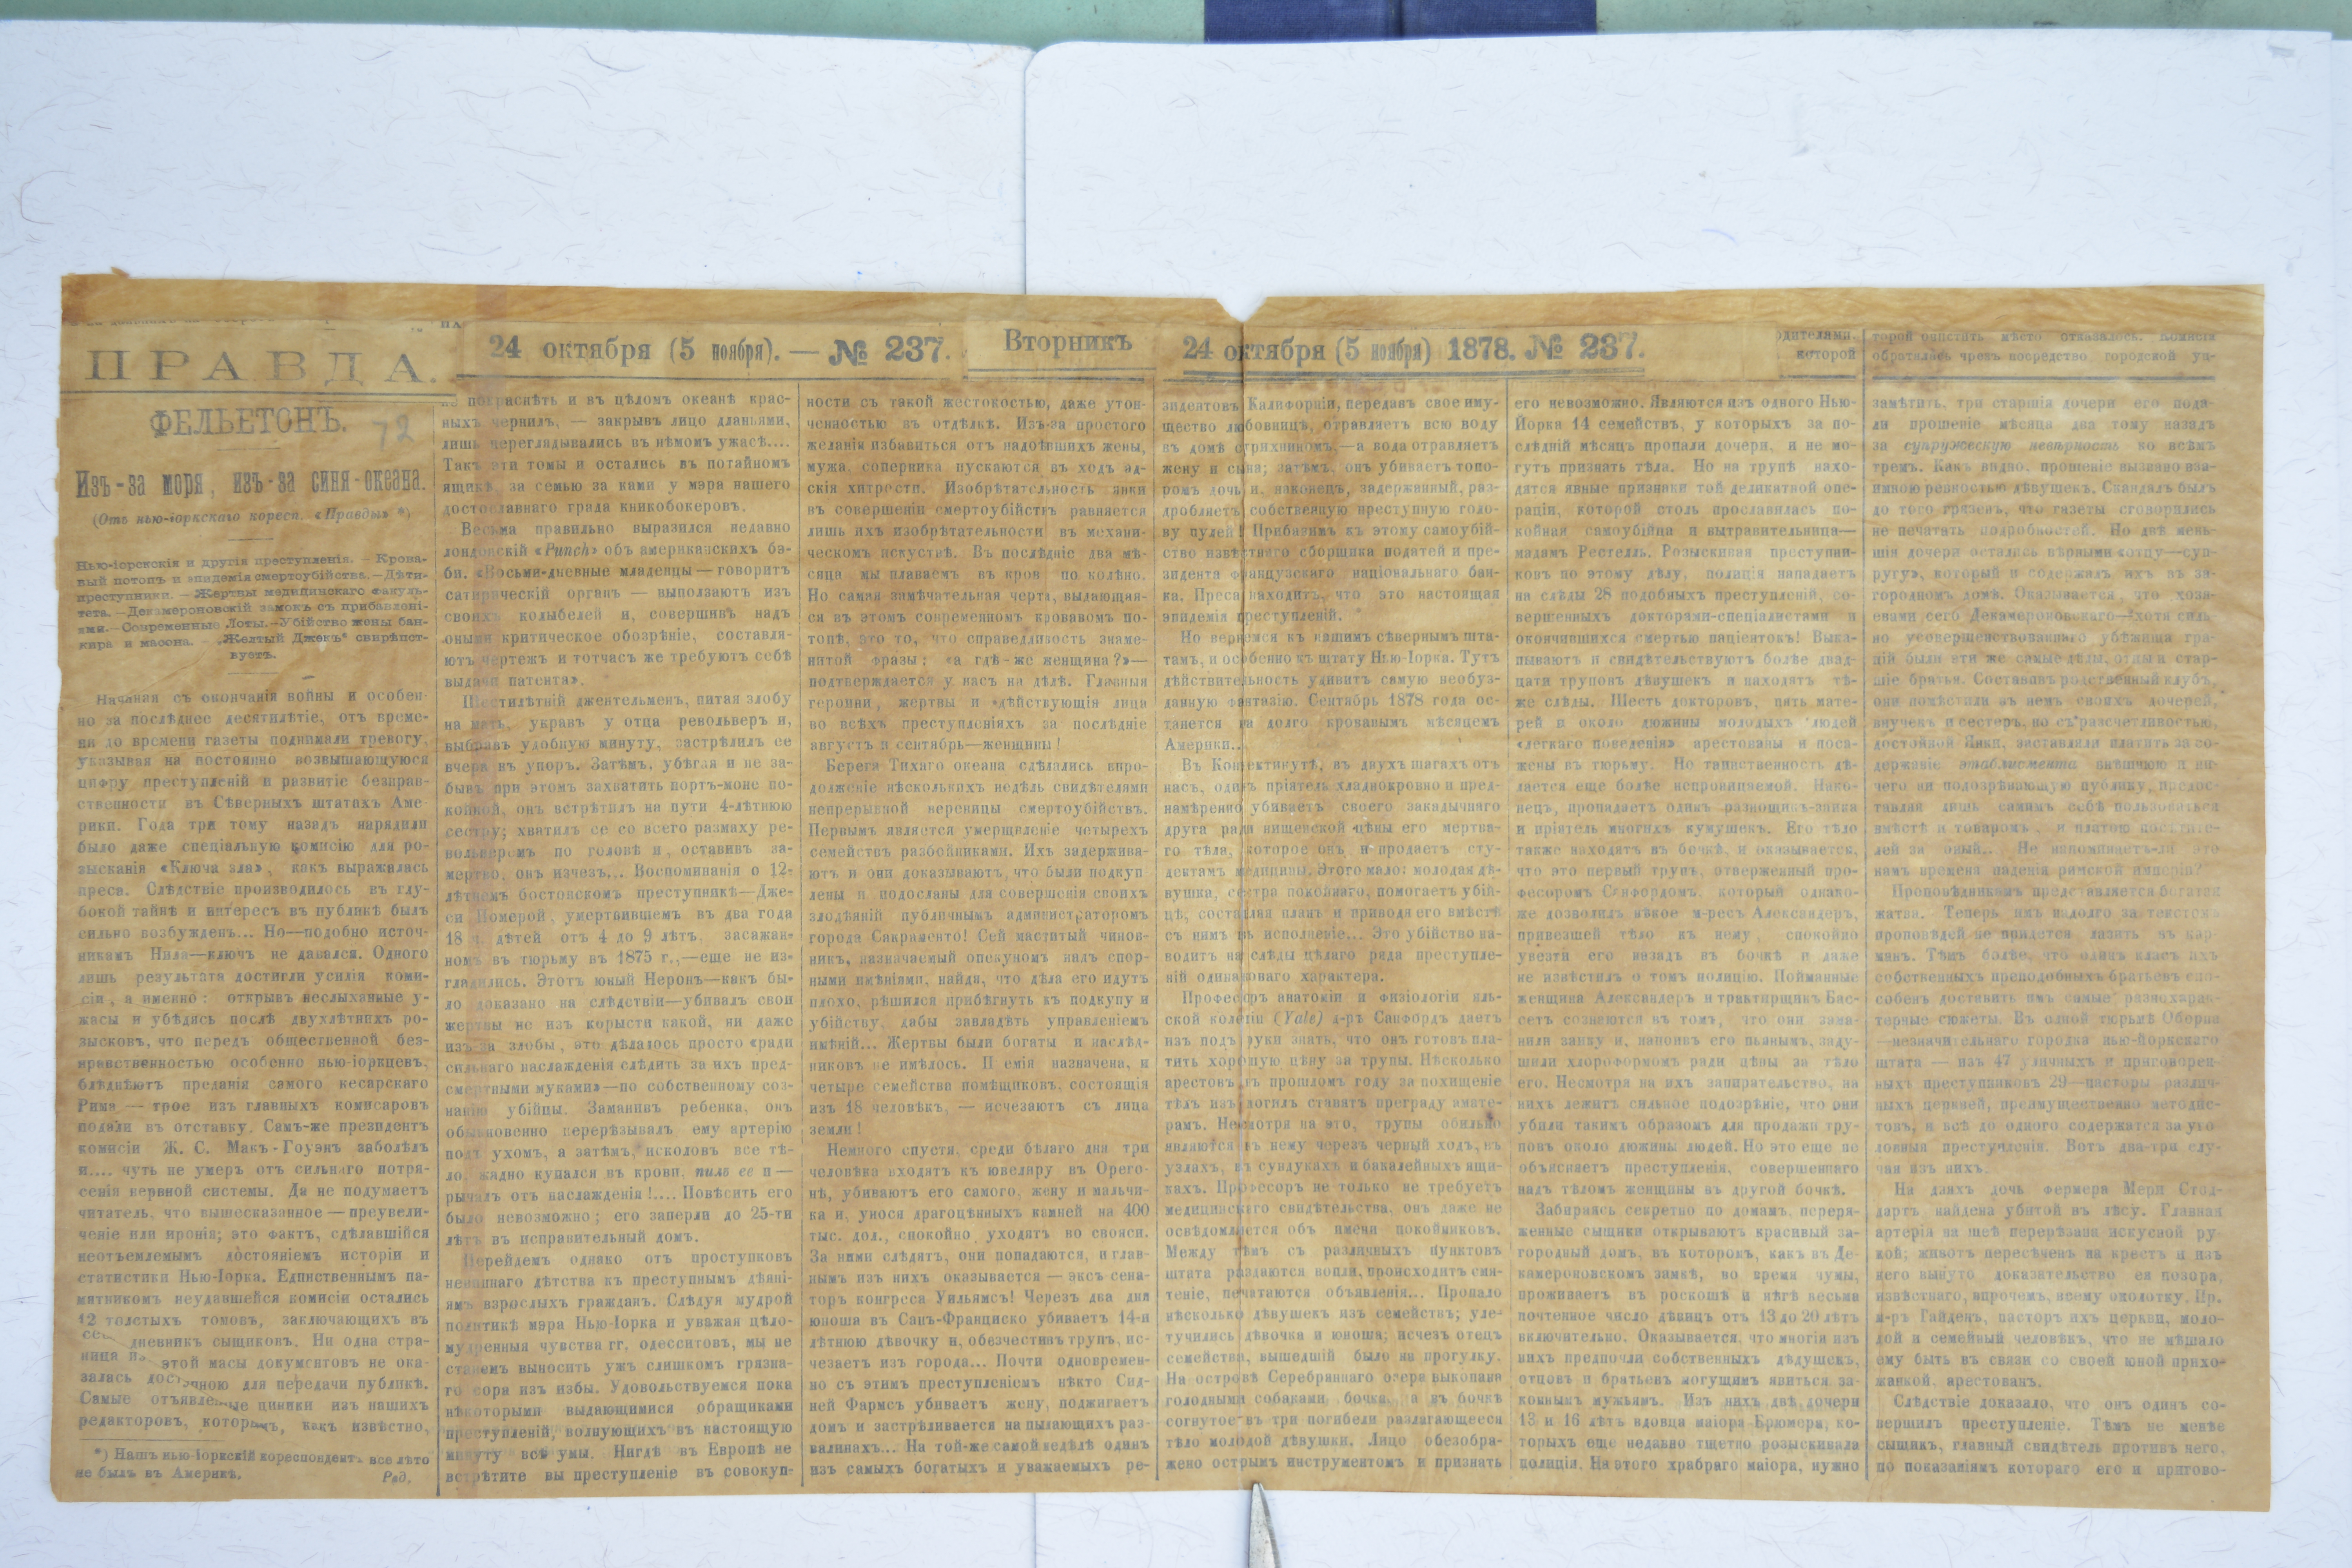 ПРАВДА.
24 октября (5 ноября). — № 237.
Вторникъ
24 октября (5 ноября) 1878. № 237.
дителями,
которой
торой очистить мѣсто отказалось. Комисія
обратилась чрезъ посредство городской уп-
ФЕЛЬЕТОНЪ.
72
Изъ-за моря, изъ-за синя-океана.
(Отъ нью-іоркскаго кореси. «Правды» *)
Нью-іорскскія и другія преступленія. — Крова-
вый потопъ и эпидемія смертоубійства. — Дѣти-
преступники. — Жертвы медицинскаго факуль-
тета. — Декамероновскій замокъ съ прибавлені-
ями. — Современные Лоты. — Убійство жены бан-
кира и масона. — „Желтый Джекъ“ свирѣпст-
вуетъ.
Начиная съ окончанія войны и особен-
но за послѣднее десятилѣтіе, отъ време-
ни до времени газеты поднимали тревогу,
указывая на постоянно возвышающуюся
цифру преступленій и развитіе безнрав-
ственности въ Сѣверныхъ штатахъ Аме-
рики. Года три тому назадъ нарядили
было даже спеціальную комисію для ро-
зысканія «Ключа зла», какъ выражалась
преса. Слѣдствіе производилось въ глу-
бокой тайнѣ и интересъ въ публикѣ былъ
сильно возбужденъ... Но—подобно источ-
никамъ Нила—ключъ не давался. Одного
лишь результата достигли усилія коми-
сіи, а именно: открывъ неслыханные у-
жасы и убѣдясь послѣ двухлѣтнихъ ро-
зысковъ, что передъ общественной без-
нравственностью особенно нью-іоркцевъ,
блѣднѣютъ преданія самого кесарскаго
Рима — трое изъ главныхъ комисаровъ
подали въ отставку. Самъ-же президентъ
комисіи Ж. С. Макъ-Гоуэнъ заболѣлъ
и.... чуть не умеръ отъ сильнаго потря-
сенія нервной системы. Да не подумаетъ
читатель, что вышесказанное — преувели-
ченіе или иронія; это фактъ, сдѣлавшійся
неотъемлемымъ достояніемъ исторіи и
статистики Нью-Іорка. Единственнымъ па-
мятникомъ неудавшейся комисіи остались
12 толстыхъ томовъ, заключающихъ въ
дневникъ сыщиковъ. Ни одна стра-
ница этой масы документовъ не ока-
залась для передачи публикѣ.
Самые циники изъ нашихъ
редакторовъ, какъ извѣстно,
*) Нашъ нью-іоркскій кореспондентъ все лѣто
не былъ въ Америкѣ. Ред.
не покраснѣть и въ цѣломъ океанѣ крас-
ныхъ чернилъ, — закрывъ лицо дланьями,
лишь переглядывались въ нѣмомъ ужасѣ....
Такъ эти томы и остались въ потайномъ
ящикѣ за семью за ками у мэра нашего
достославнаго града кникобокеровъ.
Весьма правильно выразился недавно
лондонскій «Punch» объ американскихъ бэ-
би. «Восьми-дневные младенцы — говоритъ
сатирическій органъ — выползаютъ изъ
своихъ колыбелей и, совершивъ надъ
оными критическое обозрѣніе, составля-
ютъ чертежъ и тотчасъ же требуютъ себѣ
выдачи патента».
Шестилѣтній джентельменъ, питая злобу
на мать, укравъ у отца револьверъ и,
выбравъ удобную минуту, застрѣлилъ ее
вчера въ упоръ. Затѣмъ, убѣгая и не за-
бывъ при этомъ захватить портъ-моне по-
койной, онъ встрѣтилъ на пути 4-лѣтнюю
сестру; хватилъ ее со всего размаху ре-
вольверомъ по головѣ и, оставивъ за-
мертво, онъ изчезъ... Воспоминанія о 12-
лѣтнемъ бостонскомъ преступникѣ—Дже-
си Померой, умертвившемъ въ два года
18 ч. дѣтей отъ 4 до 9 лѣтъ, засажан-
номъ въ тюрьму въ 1875 г.,—еще не из-
гладились. Этотъ юный Неронъ—какъ бы-
ло доказано на слѣдствіи—убивалъ свои
жертвы не изъ корысти какой, ни даже
изъ-за злобы, это дѣлалось просто «ради
сильнаго наслажденія слѣдить за ихъ пред-
смертными муками»—по собственному соз-
нанію убійцы. Заманивъ ребенка, онъ
обыкновенно перерѣзывалъ ему артерію
подъ ухомъ, а затѣмъ, исколовъ все тѣ-
ло, жадно купался въ крови, пилъ ее и —
рычалъ отъ наслажденія!.... Повѣсить его
было невозможно; его заперли до 25-ти
лѣтъ въ исправительный домъ.
Перейдемъ однако отъ проступковъ
невиннаго дѣтства къ преступнымъ дѣяні-
ямъ взрослыхъ граждавъ. Слѣдуя мудрой
политикѣ мэра Нью-Іорка и уважая цѣло-
мудренныя чувства гг. одесситовъ, мы не
станемъ выносить ужъ слишкомъ грязна-
го сора изъ избы. Удовольствуемся пока
нѣкоторыми выдающимися обращиками
преступленій, волнующихъ въ настоящую
минуту всѣ умы. Нигдѣ въ Европѣ не
встрѣтите вы преступленіе въ совокуп-
ности съ такой жестокостью, даже утон-
ченностью въ отдѣлкѣ. Изъ-за простого
желанія избавиться отъ надоѣвшихъ жены,
мужа, соперника пускаются въ ходъ ад-
скія хитрости. Изобрѣтательность янки
въ совершеніи смертоубійствъ равняется
лишь ихъ изобрѣтательности въ механи-
ческомъ искуствѣ. Въ послѣдніе два мѣ-
сяца мы плаваемъ въ крови по колѣно.
Но самая замѣчательная черта, выдающая-
ся въ этомъ современномъ кровавомъ по-
топѣ, это то, что справедливость знаме-
нитой фразы: «а гдѣ-же женщина?»—
подтверждается у насъ на дѣлѣ. Главныя
героини, жертвы и дѣйствующія лица
во всѣхъ преступленіяхъ за послѣдніе
августъ и сентябрь—женщины!
Берега Тихаго океана сдѣлались впро-
долженіе нѣсколькихъ недѣль свидѣтелями
непрерывной вереницы смертоубійствъ.
Первымъ является умерщвленіе четырехъ
семействъ разбойниками. Ихъ задержива-
ютъ и они доказываютъ, что были подкуп
лены и подосланы для совершенія своихъ
злодѣяній публичнымъ администраторомъ
города Сакраменто! Сей маститый чинов-
никъ, назначаемый опекуномъ надъ спор-
ными имѣніями, найдя, что дѣла его идутъ
плохо, рѣшился прибѣгнуть къ подкупу и
убійству, дабы завладѣть управленіемъ
имѣній... Жертвы были богаты и наслѣд-
никовъ не имѣлось. П емія назначена, и
четыре семейства помѣщиковъ, состоящія
изъ 18 человѣкъ, — исчезаютъ съ лица
земли!
Немного спустя, среди бѣлаго дня три
человѣка входятъ къ ювелару въ Орего-
нѣ, убиваютъ его самого, жену и мальчи-
ка и, унося драгоцѣнныхъ камней на 400
тыс. дол., спокойно уходятъ во свояси.
За ними слѣдятъ, они попадаются, и глав-
нымъ изъ нихъ оказывается — эксъ сена-
торъ конгреса Уильямсъ! Черезъ два дня
юноша въ Санъ-Франциско убиваетъ 14-и
лѣтнюю дѣвочку и, обезчестивъ трупъ, ис-
чезаетъ изъ города... Почти одновремен-
но съ этимъ преступленіемъ нѣкто Сид-
ней Фармсъ убиваетъ жену, поджигаетъ
домъ и застрѣливается на пылающихъ раз-
валинахъ... На той-же самой недѣлѣ одинъ
изъ самыхъ богатыхъ и уважаемыхъ ре-
зидентовъ Калифорніи, передавъ свое иму-
щество любовницѣ, отравляетъ всю воду
въ домѣ стрихниномъ,—а вода отравляетъ
жену и сына; затѣмъ, онъ убиваетъ топо-
ромъ дочь и, наконецъ, задержанный, раз-
дробляетъ собственную преступную голо-
ву пулей! Прибавимъ къ этому самоубій-
ство извѣстнаго сборщика податей и пре-
зидента французскаго національнаго бан-
ка. Преса находитъ, что это настоящая
эпидемія преступленій.
Но вернемся къ нашимъ сѣвернымъ шта-
тамъ, и особенно къ штату Нью-Іорка. Тутъ
дѣйствительность удивитъ самую необуз-
данную фантазію. Сентябрь 1878 года ос-
танется на долго кровавымъ мѣсяцемъ
Америки...
Въ Конектикутѣ, въ двухъ шагахъ отъ
насъ, одинъ пріятель хладнокровно и пред-
намѣренно убиваетъ своего закадычнаго
друга ради нищенской цѣны его мертва-
го тѣла, которое онъ и продаетъ сту-
дентамъ медицины. Этого мало: молодая дѣ-
вушка, сестра покойнаго, помогаетъ убій-
цѣ, составляя планъ и приводя его вмѣстѣ
съ нимъ въ исполненіе... Это убійство на-
водитъ на слѣды цѣлаго ряда преступле-
ній одинаковаго характера.
Професоръ анатоміи и физіологіи ель-
ской колегіи (Yale) д-ръ Санфордъ даетъ
изъ подъ руки знать, что онъ готовъ пла-
тить хорошую цѣну за трупы. Нѣсколько
арестовъ въ прошломъ году за похищеніе
тѣлъ изъ могилъ ставятъ преграду амате-
рамъ. Несмотря на это, трупы обильно
являются къ нему черезъ черный ходъ, въ
узлахъ, въ сундукахъ и бакалейныхъ ящи-
кахъ. Професоръ не только не требуетъ
медицинскаго свидѣтельства, онъ даже не
освѣдомляется объ имени покойниковъ.
Между тѣмъ съ различныхъ пунктовъ
штата раздаются вопли, происходитъ смя-
теніе, печатаются объявленія... Пропало
нѣсколько дѣвушекъ изъ семействъ; уле-
тучились дѣвочка и юноша; исчезъ отецъ
семейства, вышедшій было на прогулку.
На островѣ Серебрянаго озера выкопана
голодными собаками бочка, а въ бочкѣ
согнутое въ три погибели разлагающееся
тѣло молодой дѣвушки. Лицо обезобра-
жено острымъ инструментомъ и признать
его невозможно. Являются изъ одного Нью-
Йорка 14 семействъ, у которыхъ за по-
слѣдній мѣсяцъ пропали дочери, и не мо-
гутъ признать тѣла. Но на трупѣ нахо-
дятся явные признаки той деликатной опе-
раціи, которой столь прославилась по-
койная самоубійца и вытравительница—
мадамъ Рестелль. Розыскивая преступни-
ковъ по этому дѣлу, полиція нападаетъ
на слѣды 28 подобныхъ преступленій, со-
вершенныхъ докторами-спеціалистами и
окончившихся смертью паціентокъ! Выка-
пываютъ и свидѣтельствуютъ болѣе двад-
цати труповъ дѣвушекъ и находятъ тѣ-
же слѣды. Шесть докторовъ, пять мате-
рей и около дюжины молодыхъ людей
«легкаго поведенія» арестованы и поса-
жены въ тюрьму. Но таинственность дѣ-
лается еще болѣе непроницаемой. Нако-
нецъ, пропадаетъ одинъ разнощикъ-заика
и пріятель многихъ кумушекъ. Его тѣло
также находятъ въ бочкѣ, и оказывается,
что это первый трупъ, отверженный про-
фесоромъ Санфордомъ, который однако-
же дозволилъ нѣкое м-ресъ Александеръ,
привезшей тѣло къ нему, спокойно
увезти его назадъ въ бочкѣ и даже
не извѣстилъ о томъ полицію. Пойманные
женщина Александеръ и трактирщикъ Бас-
сетъ сознаются въ томъ, что они зама-
нили заику и, напоивъ его пьянымъ, заду-
шили хлороформомъ ради цѣны за тѣло
его. Несмотря на ихъ запирательство, на
нихъ лежитъ сильное подозрѣніе, что они
убили такимъ образомъ для продажи тру-
повъ около дюжины людей. Но это еще не
объясняетъ преступленія, совершеннаго
надъ тѣломъ женщины въ другой бочкѣ.
Забираясь секретно по домамъ, переря-
женные сыщики открываютъ красивый за-
городный домъ, въ которомъ, какъ въ Де-
камероновскомъ замкѣ, во время чумы,
проживаетъ въ роскошѣ и нѣгѣ весьма
почтенное число дѣвицъ отъ 13 до 20 лѣтъ
включительно. Оказывается, что многія изъ
нихъ предпочли собственныхъ дѣдушекъ,
отцовъ и братьевъ могущимъ явиться за-
коннымъ мужьямъ. Изъ нихъ двѣ дочери
13 и 16 лѣтъ вдовца маіора Брюмера, ко-
торыхъ еще недавно тщетно розыскивала
полиція. На этого храбраго маіора, нужно
замѣтить, три старшія дочери его пода-
ли прошеніе мѣсяца два тому назадъ
за супружескую невѣрность ко всѣмъ
тремъ. Какъ видно, прошеніе вызвано вза-
имною ревностью дѣвушекъ. Скандалъ былъ
до того грязенъ, что газеты сговорились
не печатать подробностей. Но двѣ мень-
шія дочери остались вѣрными «отцу—суп-
ругу», который и содержалъ ихъ въ за-
городномъ домѣ. Оказывается, что хозя-
евами сего Декамероновскаго—хотя силь-
но усовершенствованнаго убѣжища гра-
цій были эти же самые дѣды, отцы и стар-
шіе братья. Составивъ родственный клубъ,
они помѣстили въ немъ своихъ дочерей,
внучекъ и сестеръ, но съ расчетливостью,
достойной Янки, заставляли платить за со-
держаніе этаблисмента внѣшнюю и ни-
чего ни подозрѣвающую публику, предос-
тавляя лишь самимъ себѣ пользоваться
вмѣстѣ и товаромъ, и платою посѣтите-
лей за оный... Не напоминаетъ-ли это
намъ времена паденія римской имперіи?
Проповѣдникамъ представляется богатая
жатва. Теперь имъ надолго за текстомъ
проповѣдей не придется лазить въ кар-
манъ. Тѣмъ болѣе, что одинъ класъ ихъ
собственныхъ преподобныхъ братьевъ спо-
собенъ доставить имъ самые разнохарак-
терные сюжеты. Въ одной тюрьмѣ Оборне
—незначительнаго городка нью-йоркскаго
штата — изъ 47 уличныхъ и приговорен-
ныхъ преступниковъ 29—пасторы различ-
ныхъ церквей, преимущественно методис-
товъ, и всѣ до одного содержатся за уго
ловныя преступленія. Вотъ два-три слу-
чая изъ нихъ.
На дняхъ дочь фермера Мери Стод-
дартъ найдена убитой въ лѣсу. Главная
артерія на шеѣ перерѣзана искусной ру-
кой; животъ пересѣченъ на крестъ и изъ
него вынуто доказательство ея позора,
извѣстнаго, впрочемъ, всему околотку. Пр.
м-ръ Гайденъ, пасторъ ихъ церкви, моло-
дой и семейный человѣкъ, что не мѣшало
ему быть въ связи со своей юной прихо-
жанкой, арестованъ.
Слѣдствіе доказало, что онъ одинъ со-
вершилъ преступленіе. Тѣмъ не менѣе
сыщикъ, главный свидѣтель противъ него,
по показаніямъ котораго его и пригово-